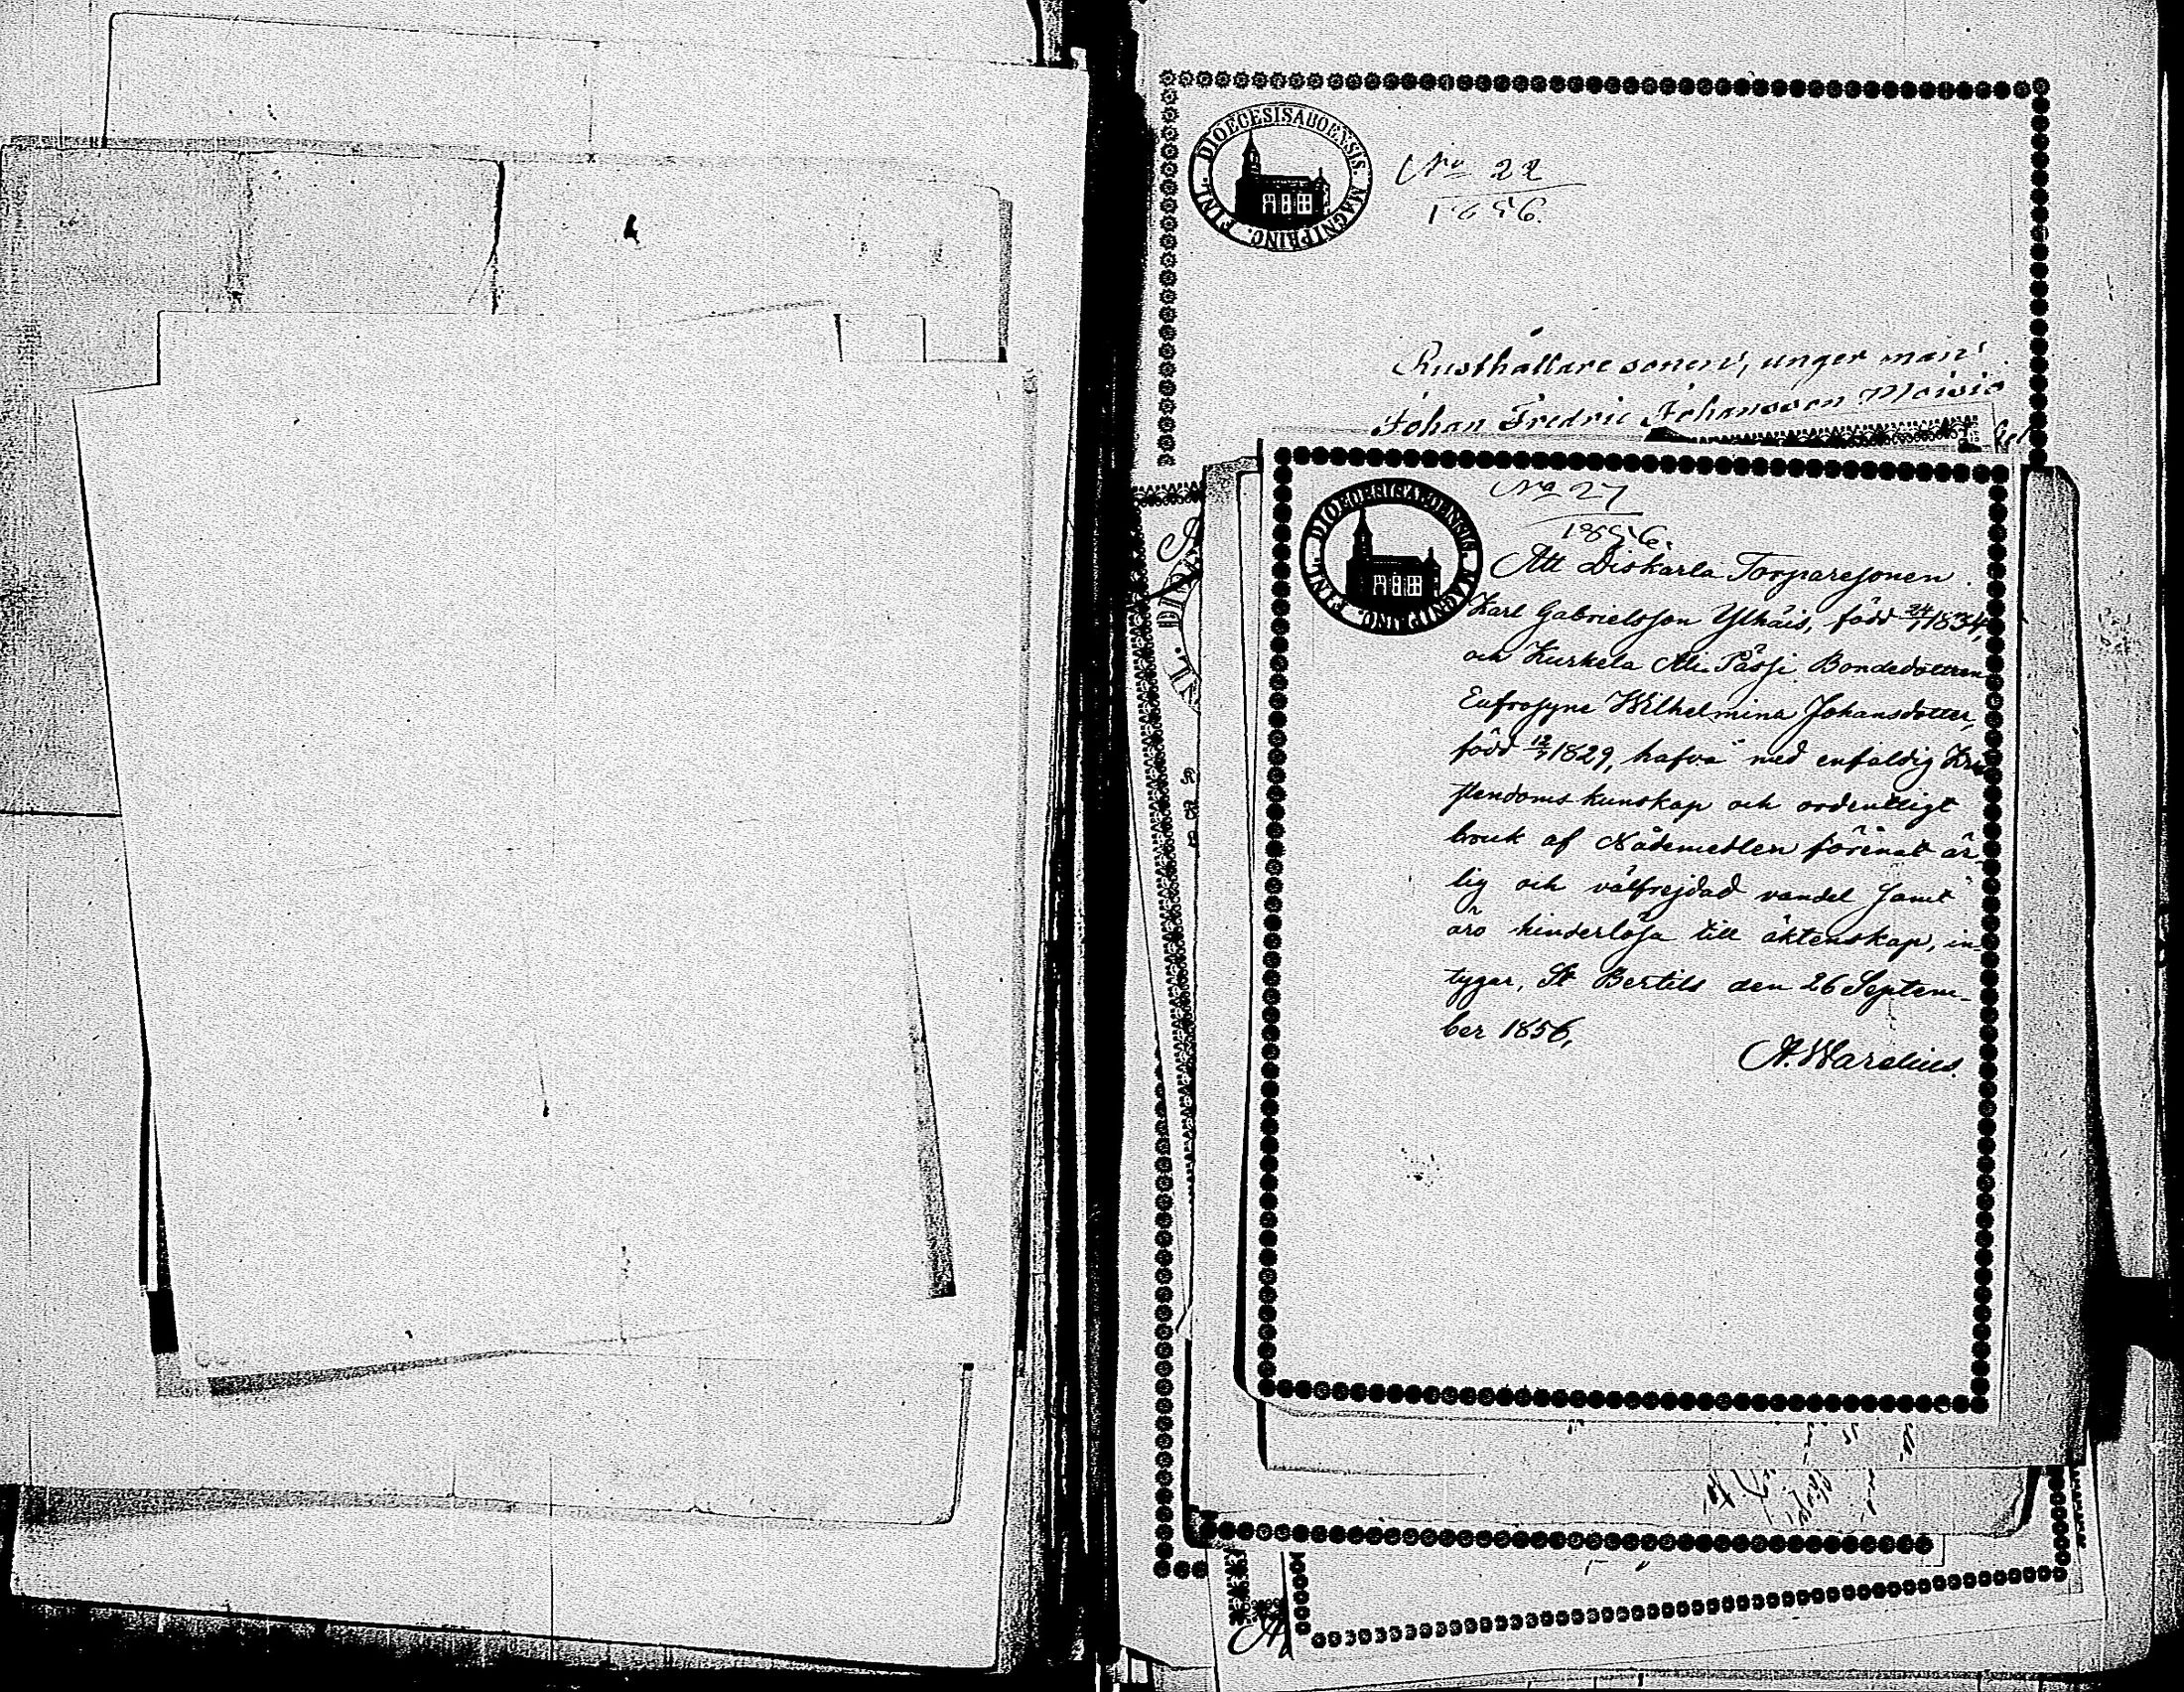 DIOECESIS ABOENSIS. MAGNI PRINC. FINL.
No 22
1856.
Rusthållare sonen, unger man
Johan Fredric Johansson Moisio
DIOECESIS ABOENSIS. MAGNI PRINC. FINL.
No 27
1856.
Att Diskarla Torparesonen
Karl Gabrielsson Ylhäis, född 24/1 1834,
och Kurkela Ali Påssi Bondedottren
Eufrosyne Wilhelmina Johansdotter,
född 12/7 1829, hafva med enfaldig Kri
stendoms kunskap och ordentligt
bruk af Nådemedlen förenat är
lig och välfrejdad vandel samt
äro hinderlösa till äktenskap, in
tygar, St Bertils den 26 Septem-
ber 1856,
A. Warelius.